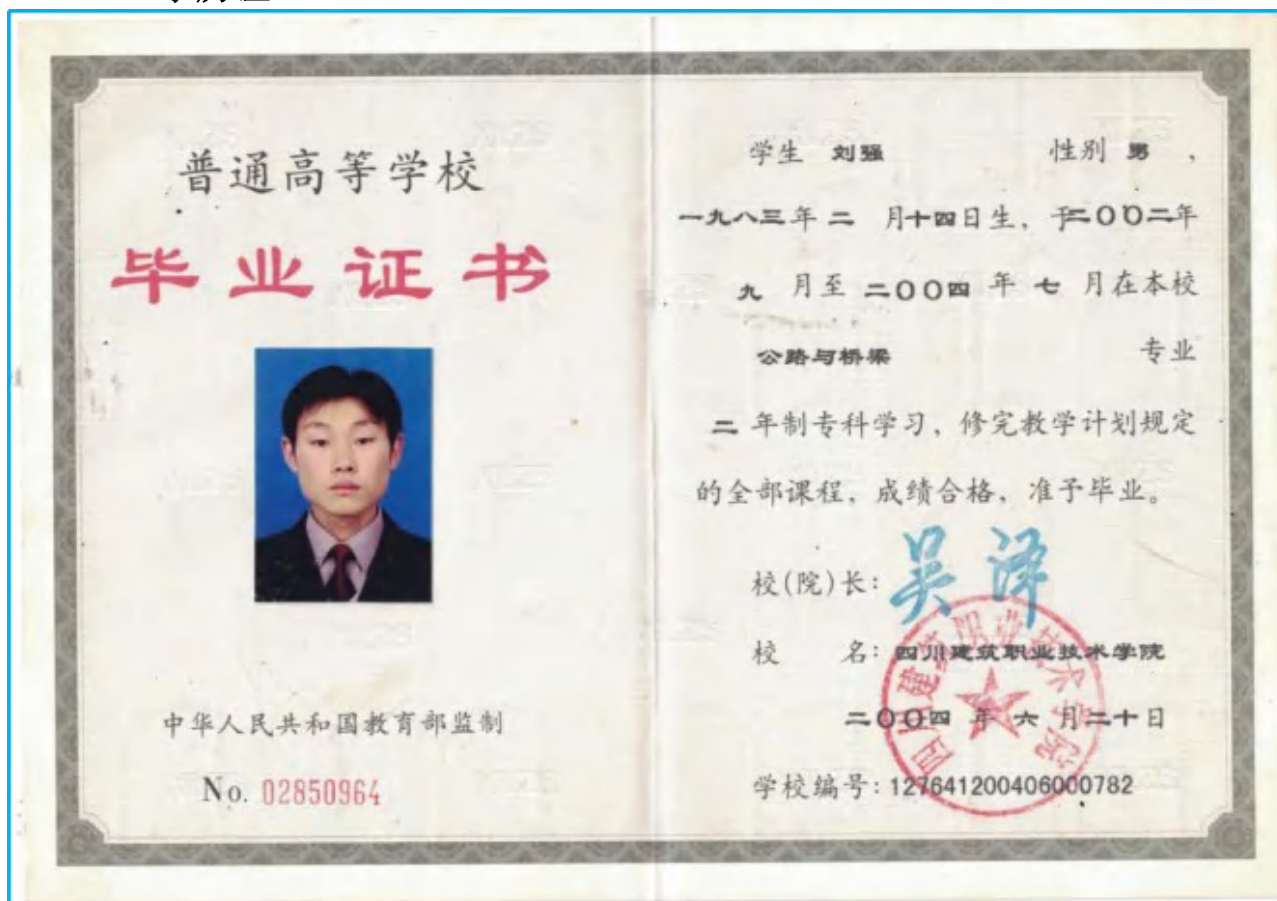 普通高等学校
毕业证书
中华人民共和国教育部监制
No. 02850964
学生 刘强 性别 男 ,
一九八三年 二 月十四日生、于二〇〇二年
九 月至 二〇〇四 年 七 月在本校
公路与桥梁 专业
二 年制专科学习、修完教学计划规定
的全部课程、成绩合格、准予毕业。
校(院)长: 吴泽
校 名: 四川建筑职业技术学院
四川建筑职业技术学院
二〇〇四 年 六 月二十日
学校编号: 127641200406000782